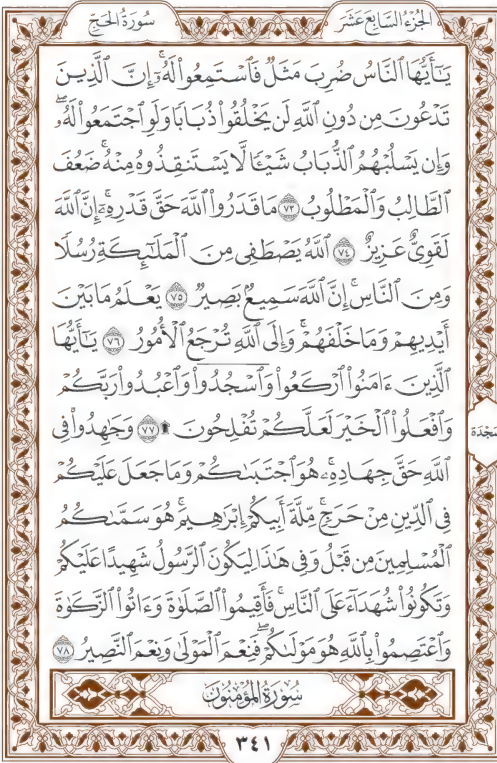 الجزء السابع عشر
سورة الحج
يَـٰٓأَيُّهَا ٱلنَّاسُ ضُرِبَ مَثَلٞ فَٱسۡتَمِعُواْ لَهُۥٓۚ إِنَّ ٱلَّذِينَ
تَدۡعُونَ مِن دُونِ ٱللَّهِ لَن يَخۡلُقُواْ ذُبَابٗا وَلَوِ ٱجۡتَمَعُواْ لَهُۥۖ
وَإِن يَسۡلُبۡهُمُ ٱلذُّبَابُ شَيۡـٔٗا لَّا يَسۡتَنقِذُوهُ مِنۡهُۚ ضَعُفَ
ٱلطَّالِبُ وَٱلۡمَطۡلُوبُ ٧٣ مَا قَدَرُواْ ٱللَّهَ حَقَّ قَدۡرِهِۦٓۚ إِنَّ ٱللَّهَ
لَقَوِيٌّ عَزِيزٌ ٧٤ ٱللَّهُ يَصۡطَفِي مِنَ ٱلۡمَلَـٰٓئِكَةِ رُسُلٗا
وَمِنَ ٱلنَّاسِۚ إِنَّ ٱللَّهَ سَمِيعُۢ بَصِيرٞ ٧٥ يَعۡلَمُ مَا بَيۡنَ
أَيۡدِيهِمۡ وَمَا خَلۡفَهُمۡۚ وَإِلَى ٱللَّهِ تُرۡجَعُ ٱلۡأُمُورُ ٧٦ يَـٰٓأَيُّهَا
ٱلَّذِينَ ءَامَنُواْ ٱرۡكَعُواْ وَٱسۡجُدُواْ وَٱعۡبُدُواْ رَبَّكُمۡ
وَٱفۡعَلُواْ ٱلۡخَيۡرَ لَعَلَّكُمۡ تُفۡلِحُونَ ۩ ٧٧ وَجَـٰهِدُواْ فِي
سجدة
ٱللَّهِ حَقَّ جِهَادِهِۦۚ هُوَ ٱجۡتَبَىٰكُمۡ وَمَا جَعَلَ عَلَيۡكُمۡ
فِي ٱلدِّينِ مِنۡ حَرَجٖۚ مِّلَّةَ أَبِيكُمۡ إِبۡرَٰهِيمَۚ هُوَ سَمَّىٰكُمُ
ٱلۡمُسۡلِمِينَ مِن قَبۡلُ وَفِي هَـٰذَا لِيَكُونَ ٱلرَّسُولُ شَهِيدًا عَلَيۡكُمۡ
وَتَكُونُواْ شُهَدَآءَ عَلَى ٱلنَّاسِۚ فَأَقِيمُواْ ٱلصَّلَوٰةَ وَءَاتُواْ ٱلزَّكَوٰةَ
وَٱعۡتَصِمُواْ بِٱللَّهِ هُوَ مَوۡلَىٰكُمۡۖ فَنِعۡمَ ٱلۡمَوۡلَىٰ وَنِعۡمَ ٱلنَّصِيرُ ٧٨
سورة المؤمنون
٣٤١